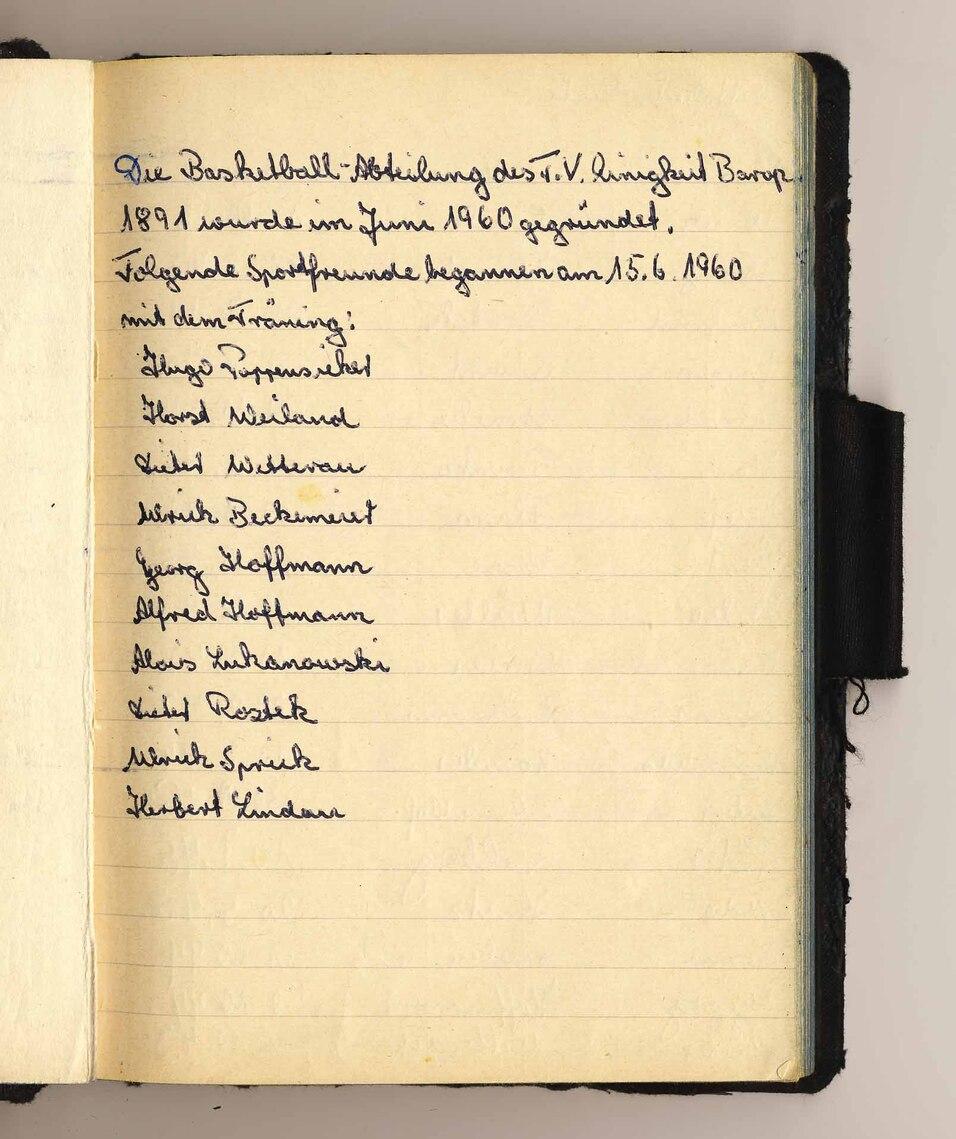 Die Basketball-Abteilung des T.V. Einigkeit Barop
1891 wurde im Juni 1960 gegründet.
Folgende Sportfreunde begannen am 15.6.1960
mit dem Träning:
Hugo Pappensieker
Horst Weiland
Dieter Wetterau
Ulrich Beckemeier
Georg Hoffmann
Alfred Hoffmann
Alois Lukanowski
Dieter Rostek
Ulrich Spruk
Herbert Lindau